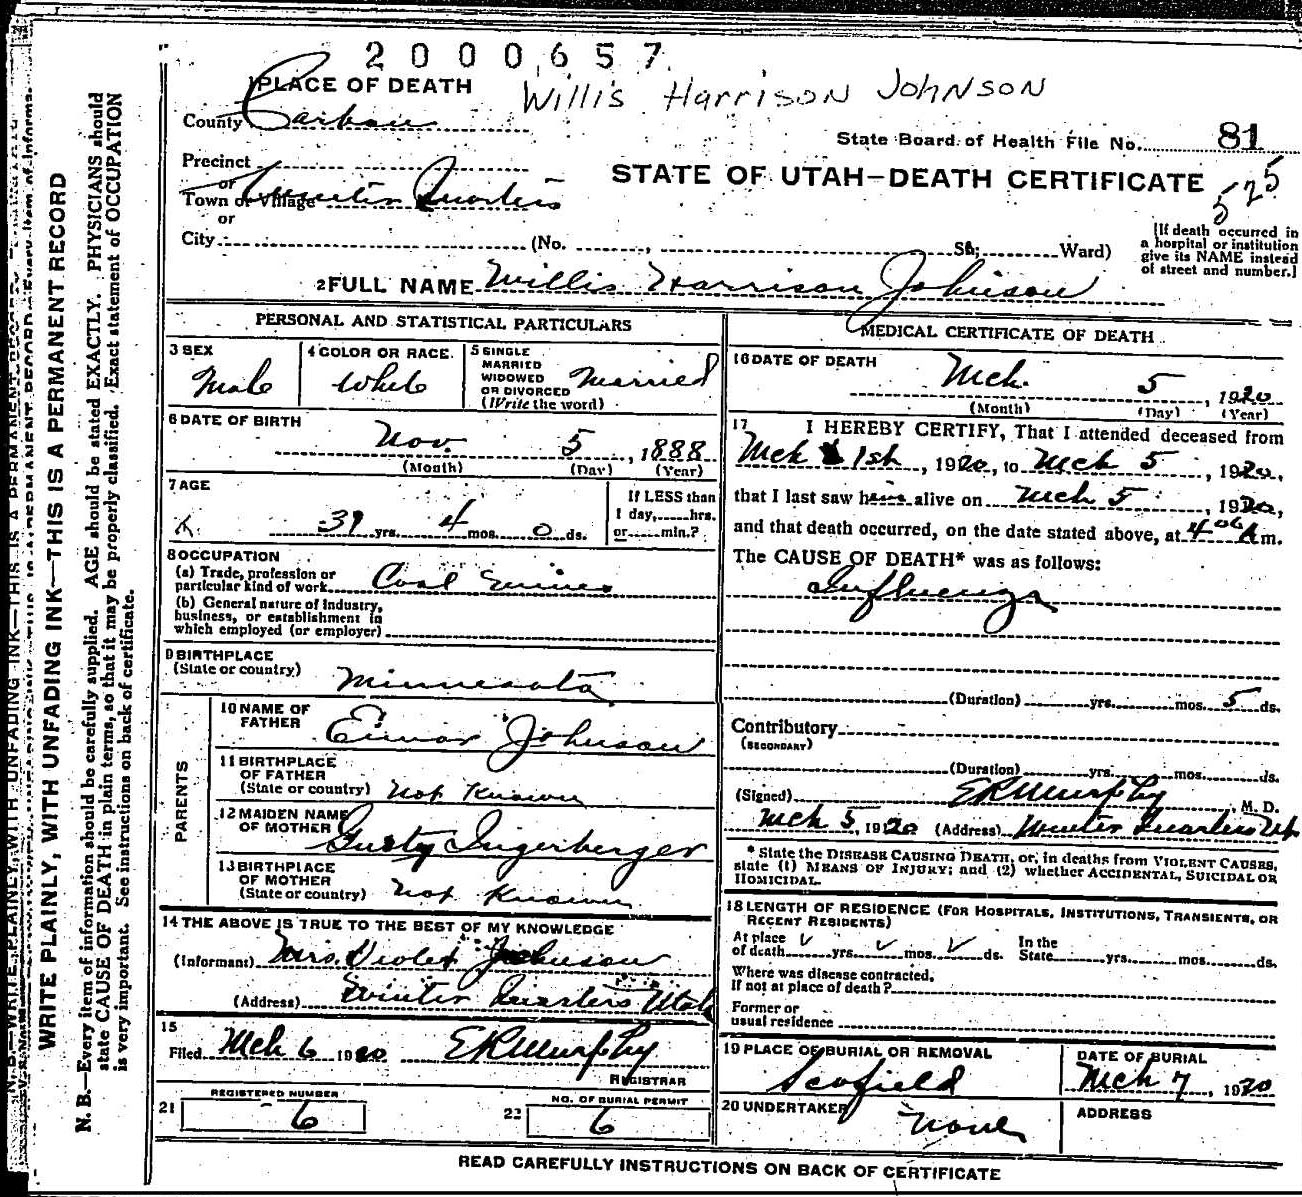 2000657
Willis Harrison Johnson
1 PLACE OF DEATH
County Carbon
State Board of Health File No. 81
Precinct
or
Town or Village Winter Quarters
or
STATE OF UTAH—DEATH CERTIFICATE
525
City (No. , St; Ward)
[If death occurred in
a hospital or institution
give its NAME instead
of street and number.]
2 FULL NAME Willis Harrison Johnson
PERSONAL AND STATISTICAL PARTICULARS
3 SEX
Male
4 COLOR OR RACE.
White
5 SINGLE
MARRIED
WIDOWED
OR DIVORCED
(Write the word)
Married
6 DATE OF BIRTH
Nov. 5, 1888
(Month) (Day) (Year)
7 AGE
31 yrs. 4 mos. 0 ds.
If LESS than
1 day, hrs.
or min.?
8 OCCUPATION
(a) Trade, profession or
particular kind of work Coal
(b) General nature of Industry,
business, or establishment in
which employed (or employer)
9 BIRTHPLACE
(State or country) Minnesota
PARENTS
10 NAME OF
FATHER Johnson
11 BIRTHPLACE
OF FATHER
(State or country) Not Known
12 MAIDEN NAME
OF MOTHER Gusty Ingerberger
13 BIRTHPLACE
OF MOTHER
(State or country) Not Known
14 THE ABOVE IS TRUE TO THE BEST OF MY KNOWLEDGE
(Informant) Mrs. Violet Johnson
(Address) Winter Quarters Utah
15
Filed Mch 6 1920 ER Murphy
REGISTRAR
REGISTERED NUMBER
21 6
NO. OF BURIAL PERMIT
22 6
MEDICAL CERTIFICATE OF DEATH
16 DATE OF DEATH
Mch. 5, 1920
(Month) (Day) (Year)
17 I HEREBY CERTIFY, That I attended deceased from
Mch 1st, 1920, to Mch 5, 1920,
that I last saw him alive on Mch 5, 1920,
and that death occurred, on the date stated above, at 4 00 A m.
The CAUSE OF DEATH* was as follows:
Influenza
(Duration) yrs. mos. 5 ds.
Contributory
(SECONDARY)
(Duration) yrs. mos. ds.
(Signed) ER Murphy, M. D.
Mch 5, 1920 (Address) Winter Quarters Ut
* State the DISEASE CAUSING DEATH, or, in deaths from VIOLENT CAUSES,
state (1) MEANS OF INJURY; and (2) whether ACCIDENTAL, SUICIDAL OR
HOMICIDAL.
18 LENGTH OF RESIDENCE (FOR HOSPITALS, INSTITUTIONS, TRANSIENTS, OR
RECENT RESIDENTS)
At place
of death yrs. mos. ds.
In the
State yrs. mos. ds.
Where was disease contracted,
If not at place of death?
Former or
usual residence
19 PLACE OF BURIAL OR REMOVAL
Scofield
DATE OF BURIAL
Mch 7, 1920
20 UNDERTAKER
None
ADDRESS
READ CAREFULLY INSTRUCTIONS ON BACK OF CERTIFICATE
WRITE PLAINLY, WITH UNFADING INK—THIS IS A PERMANENT RECORD
N. B.—Every item of information should be carefully supplied. AGE should be stated EXACTLY. PHYSICIANS should
state CAUSE OF DEATH in plain terms, so that it may be properly classified. Exact statement of OCCUPATION
is very important. See instructions on back of certificate.